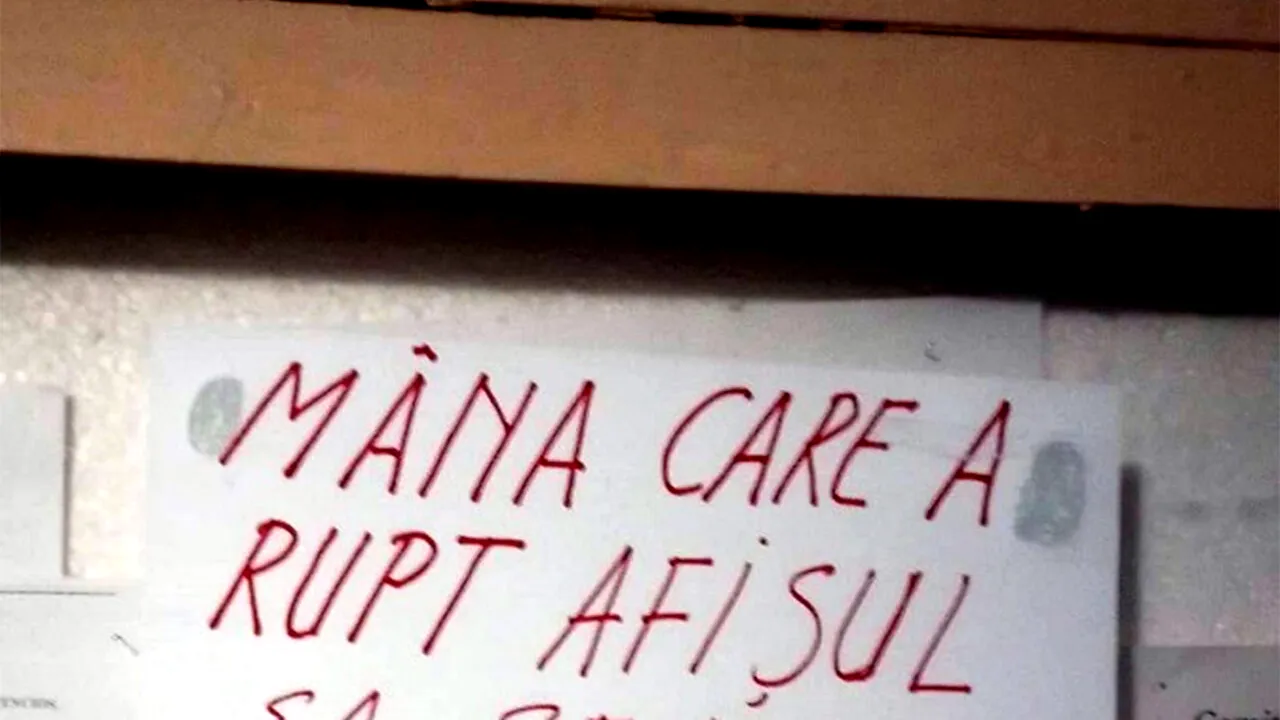 MÂNA CARE A
RUPT AFİŞUL
SA